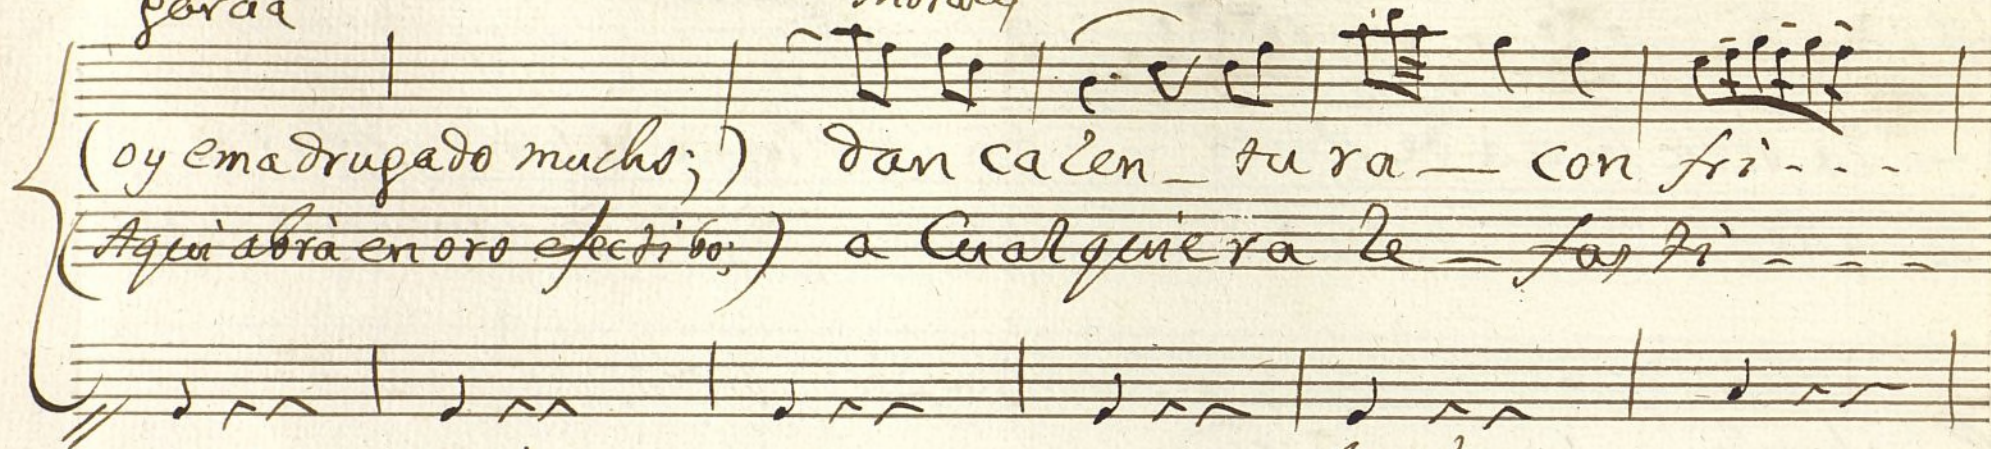 (oy emadrugado mucho;) dan calen_tu ra_ con fri - - -
(Aqui abrà en oro efectibo;) a Cualquiera le_ fas ti - - -